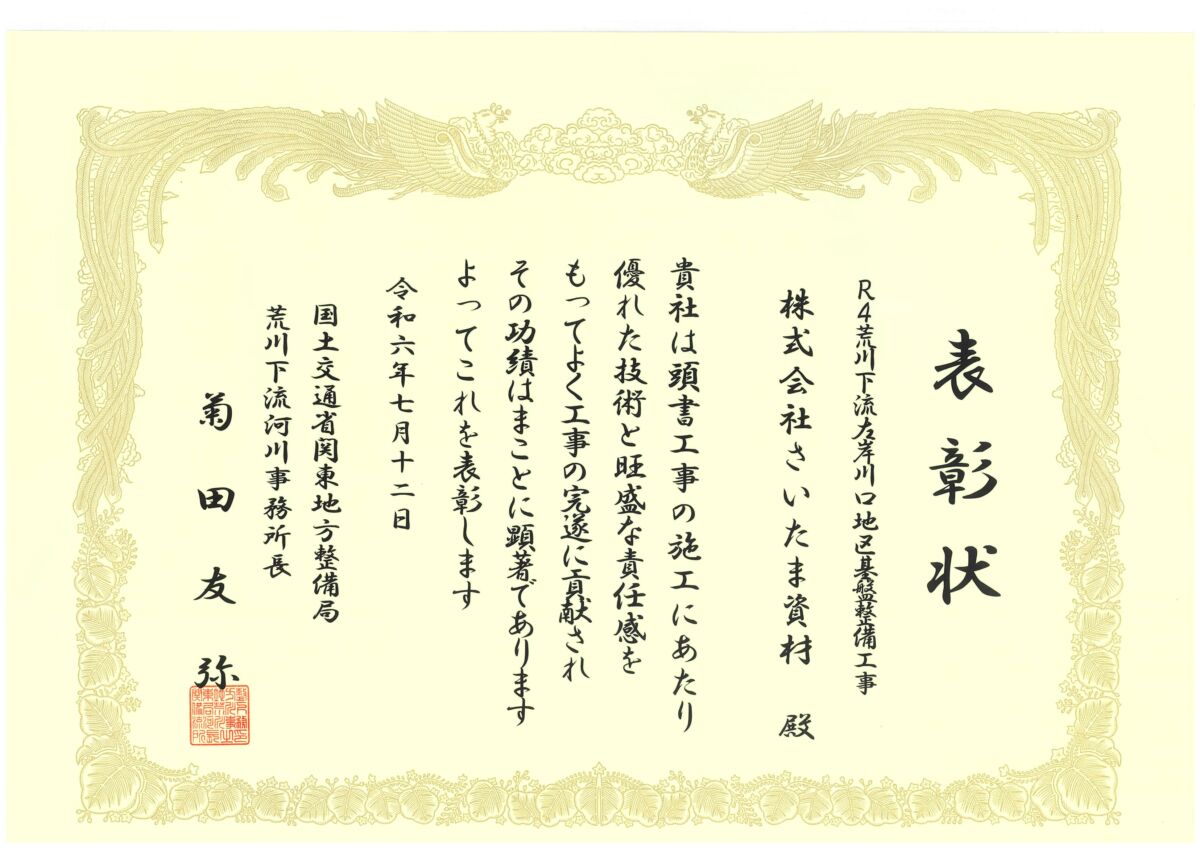 表彰状
R4荒川下流左岸川口地区基盤整備工事
株式会社さいたま資材 殿
貴社は頭書工事の施工にあたり
優れた技術と旺盛な責任感を
もってよく工事の完遂に貢献され
その功績はまことに顕著であります
よってこれを表彰します
令和六年七月十二日
国土交通省関東地方整備局
荒川下流河川事務所長
菊田友弥